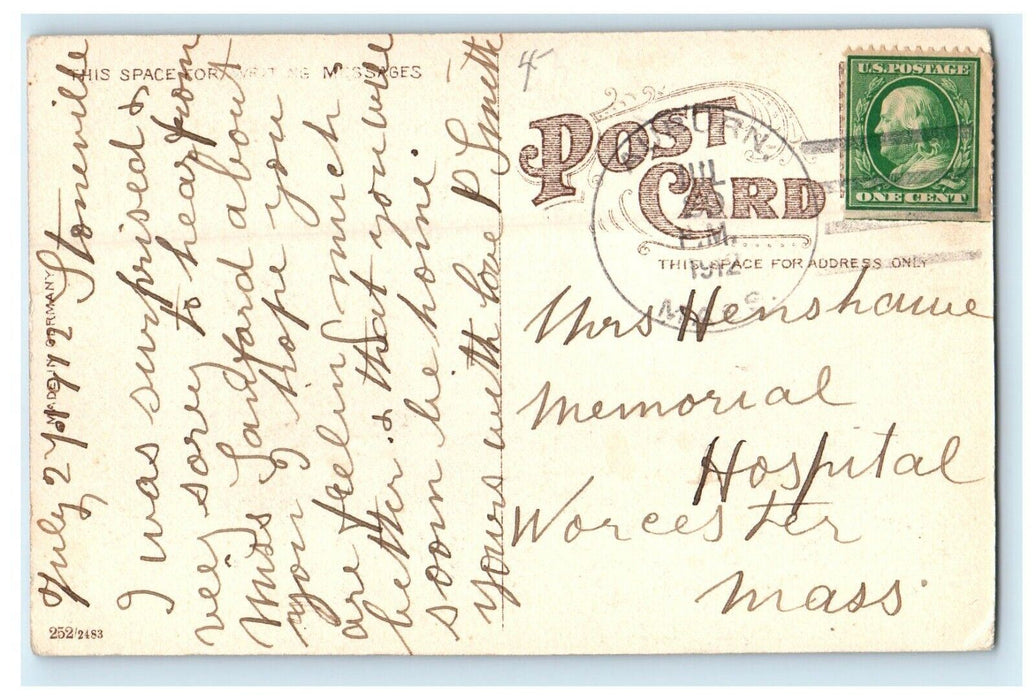 THIS SPACE FOR WRITING MESSAGES
July 27 1912 Stoneville
I was surprised &
very sorry to hear from
Miss Sanford about
you I hope you
are feeling much
better & that you will
soon be home
yours with love P Smith
MADE IN GERMANY
252/2483
4-
POST
CARD
U.S. POSTAGE
ONE CENT
AUBURN
JUL
P.M.
1912
MASS.
THIS SPACE FOR ADDRESS ONLY
Mrs Henshawe
Memorial
Hospital
Worcester
Mass.